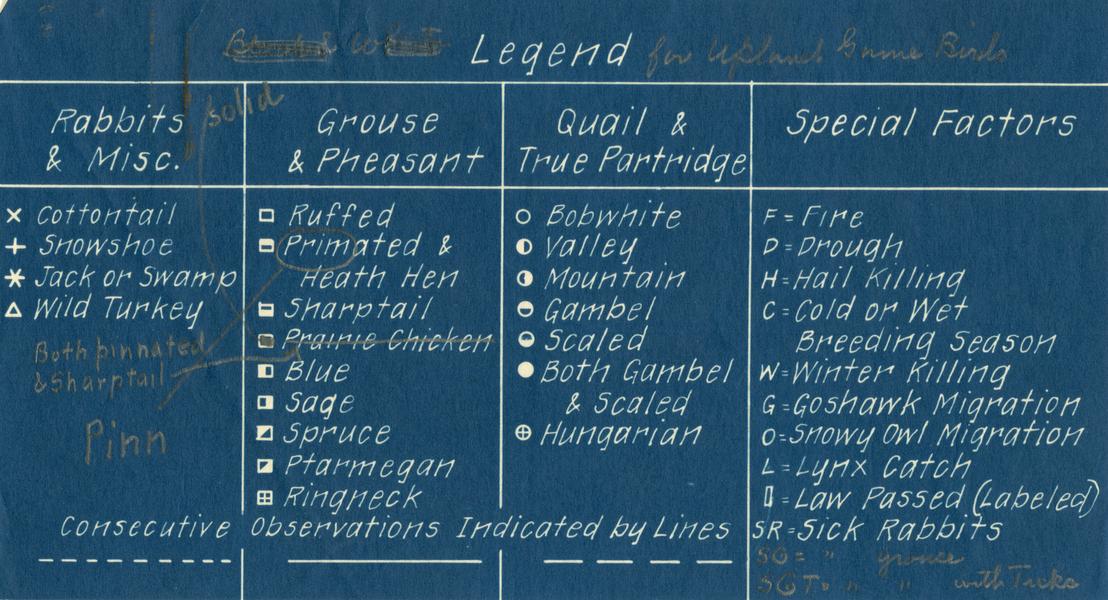 Legend for Upland Game Birds
Rabbits
& Misc.
solid
Grouse
& Pheasant
Quail &
True Partridge
Special Factors
Cottontail
Snowshoe
Jack or Swamp
Wild Turkey
Both pinnated
& Sharptail
Pinn
Ruffed
Primated &
Heath Hen
Sharptail
Prairie Chicken
Blue
Sage
Spruce
Ptarmegan
Ringneck
Bobwhite
Valley
Mountain
Gambel
Scaled
Both Gambel
& Scaled
Hungarian
F = Fire
D = Drough
H = Hail Killing
C = Cold or Wet
Breeding Season
W = Winter Killing
G = Goshawk Migration
O = Snowy Owl Migration
L = Lynx Catch
= Law Passed (Labeled)
SR = Sick Rabbits
SG = " grouse
SGT = " " with Ticks
Consecutive Observations Indicated by Lines